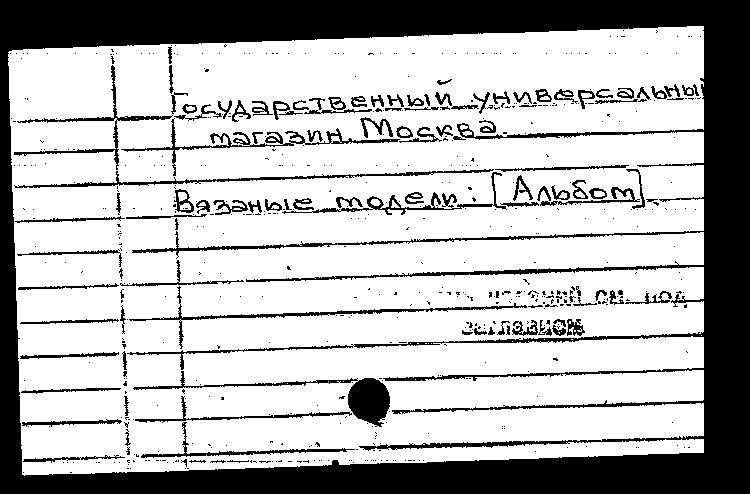 Государственный универсальный
магазин. Москва.
Вязаные модели: [Альбом].
изданий см. под
заглавием